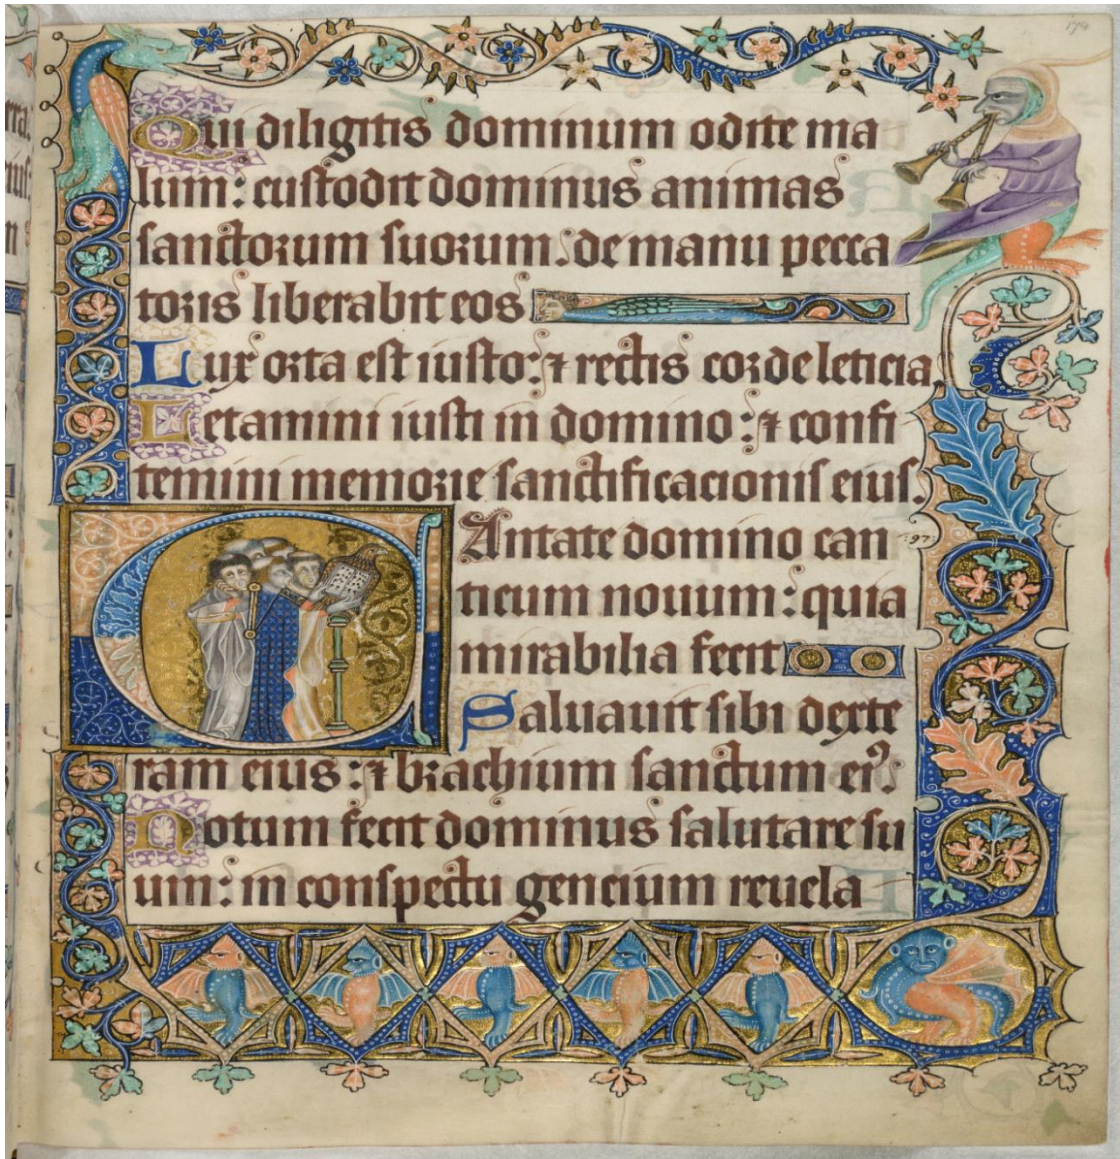 174
Qui diligitis dominum odite ma
lum: custodit dominus animas
sanctorum suorum: de manu pecca
toris liberabit eos
Lux orta est iusto: ⁊ rectis corde leticia
Letamini iusti in domino: ⁊ confi
temini memorie sanctificacionis eius.
CAntate domino can
97
ticum nouum: quia
mirabilia fecit
Saluauit sibi dexte
ram eius: ⁊ brachium sanctum eiꝰ
Notum fecit dominus salutare su
um: in conspectu gencium reuela